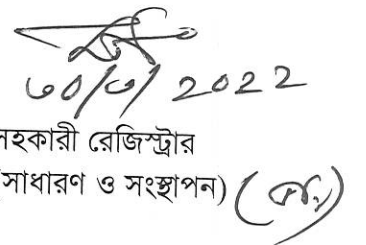 ৩০/৩/2022
সহকারী রেজিস্ট্রার
(সাধারণ ও সংস্থাপন)